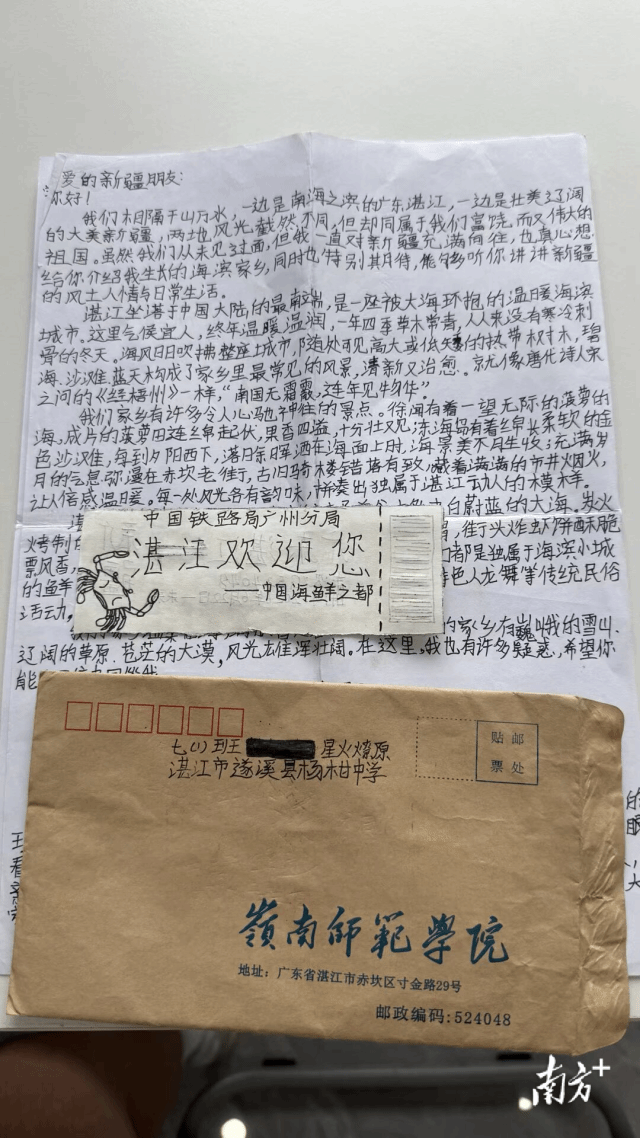 爱的新疆朋友:
你好!
我们相隔千山万水,一边是南海之滨的广东湛江,一边是壮美辽阔
的大美新疆,两地风光截然不同,但却同属于我们富饶而又伟大的
祖国。虽然我们从未见过面,但我一直对新疆充满向往,也真心想
给你介绍我生长的海滨家乡,同时也特别期待,能够多听你讲讲新疆
的风土人情与日常生活。
湛江坐落于中国大陆的最南端,是一座被大海环抱的温暖海滨
城市。这里气侯宜人,终年温暖湿润,一年四季草木常青,从来没有寒冷刺
骨的冬天。海风日日吹拂整座城市,随处可见高大或低矮的热带树木,碧
海、沙滩、蓝天构成了家乡里最常见的风景,清新又治愈。就像唐代诗人宋
之问的《经梧州》一样,“南国无霜霰,连年见物华”
我们家乡有许多令人心驰神往的景点。徐闻有着一望无际的菠萝的
海,成片的菠萝田连绵起伏,果香四溢,十分壮观;东海岛有着绵长柔软的金
色沙滩,每到夕阳西下,落日余晖洒在海面上时,海景美不胜收;充满岁
月的气息弥漫在赤坎老街,古旧骑楼错落有致,藏着满满的市井烟火,
让人倍感温暖。每一处风光各有韵味,拼凑出独属于湛江动人的模样。
蔚蓝的大海。炭火
烤制的
街头炸虾饼酥脆
飘香,
都是独属于海滨小城
的鲜
特色人龙舞等传统民俗
活动,
中国铁路局广州分局
湛江欢迎您
——中国海鲜之都
的家乡有巍峨的雪山、
辽阔的草原、苍茫的大漠,风光雄浑壮阔。在这里,我也有许多疑惑,希望你
能
七(1)班 星火燎原
湛江市遂溪县杨柑中学
贴 邮
票 处
嶺南師範學院
地址:广东省湛江市赤坎区寸金路29号
邮政编码:524048
南方+